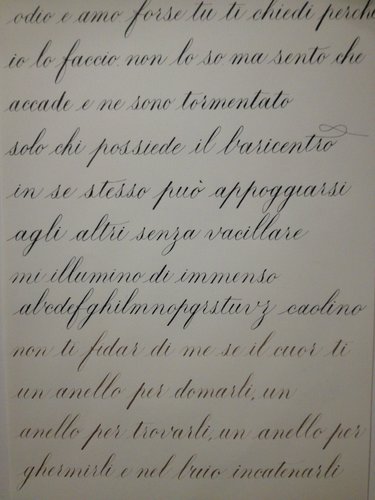 odio e amo forse tu ti chiedi perché
io lo faccio non lo so ma sento che
accade e ne sono tormentato
solo chi possiede il baricentro
in se stesso può appoggiarsi
agli altri senza vacillare
mi illumino di immenso
abcdefghilmnopqrstuvz caolino
non ti fidar di me se il cuor ti
un anello per domarli, un
anello per trovarli, un anello per
ghermirli e nel buio incatenarli